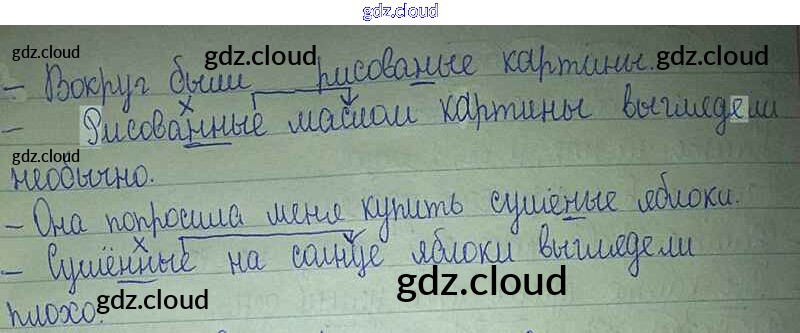 gdz.cloud
gdz.cloud gdz.cloud gdz.cloud
- Вокруг были рисованые картины.
- Рисованные маслом картины выглядели
gdz.cloud gdz.cloud
необычно.
gdz.cloud gdz.cloud
- Она попросила меня купить сушёные яблоки.
- Сушённые на солнце яблоки выглядели
gdz.cloud gdz.cloud
плохо.